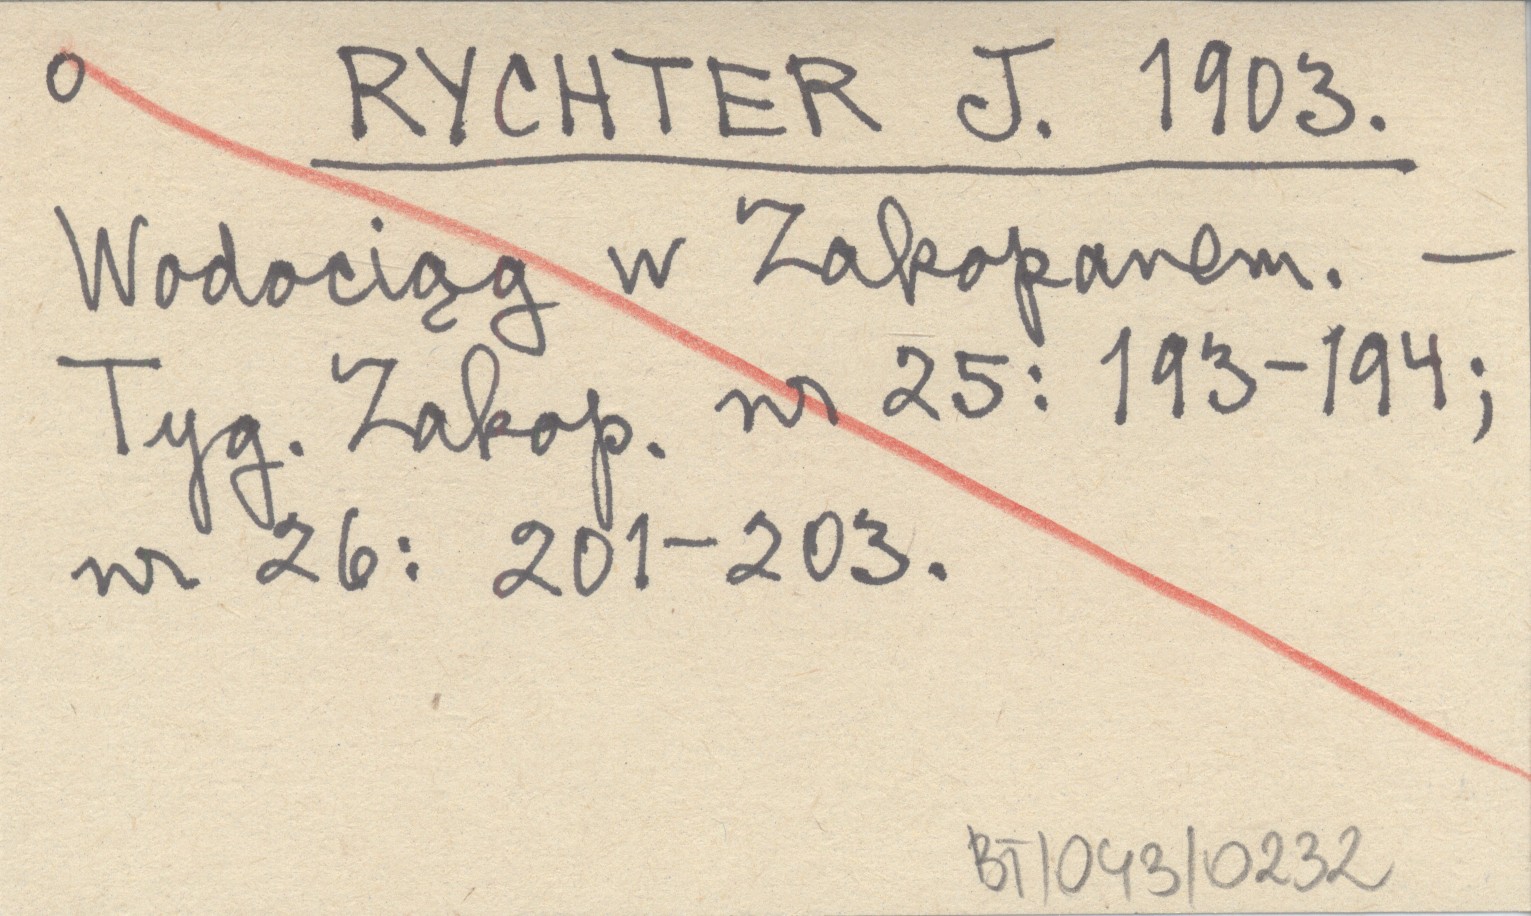 o RYCHTER J. 1903.
Wodociąg w Zakopanem. —
Tyg. Zakop. nr 25: 193-194;
nr 26: 201-203.
BT/043/0232